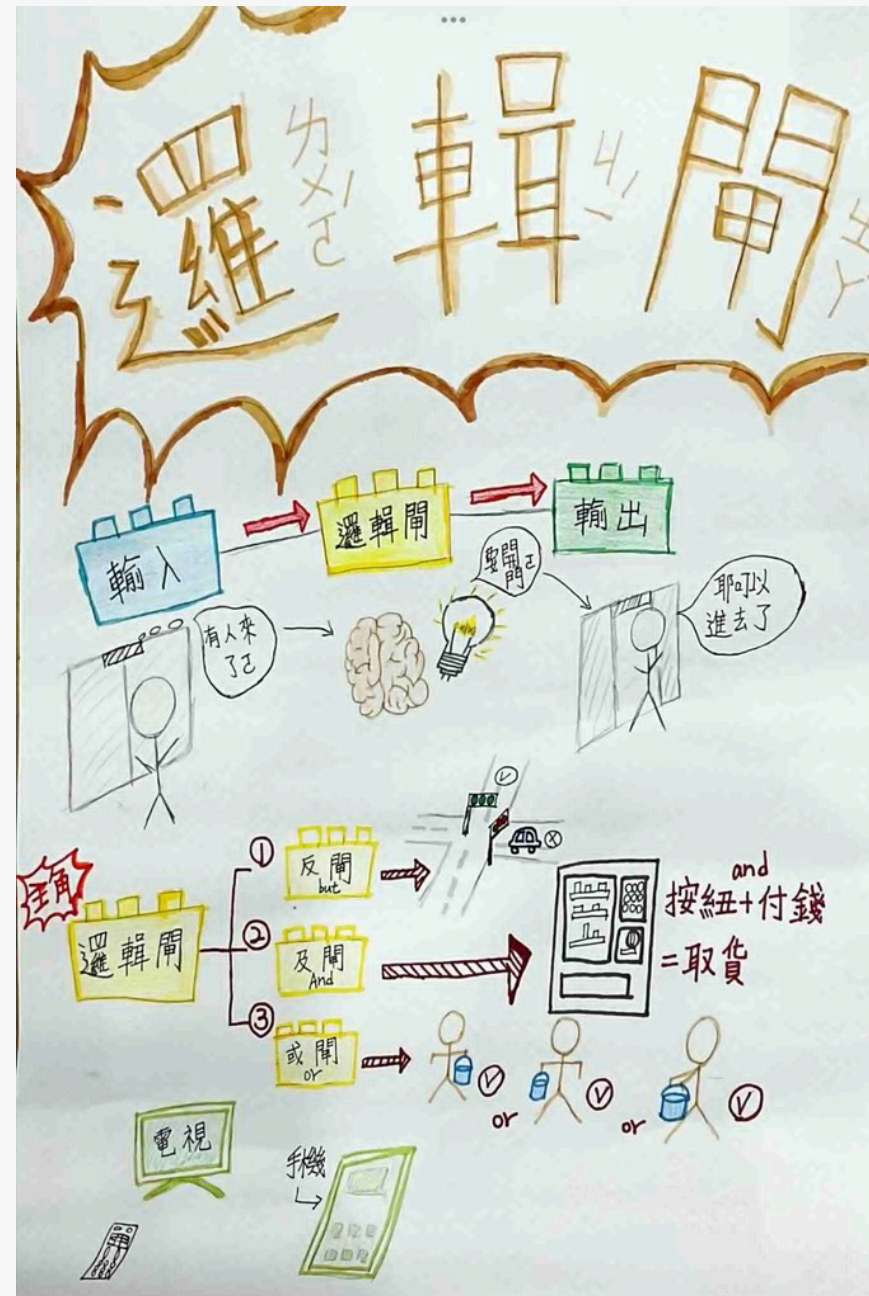 邏輯閘
ㄌㄨㄛˊ ㄐㄧˊ ㄓㄚˊ
輸入
邏輯閘
輸出
有人來
了ㄛ
要開
門ㄛ
耶可以
進去了
主角
邏輯閘
①
反閘
but
②
及閘
And
③
或閘
or
and
按紐+付錢
=取貨
or
or
電視
手機